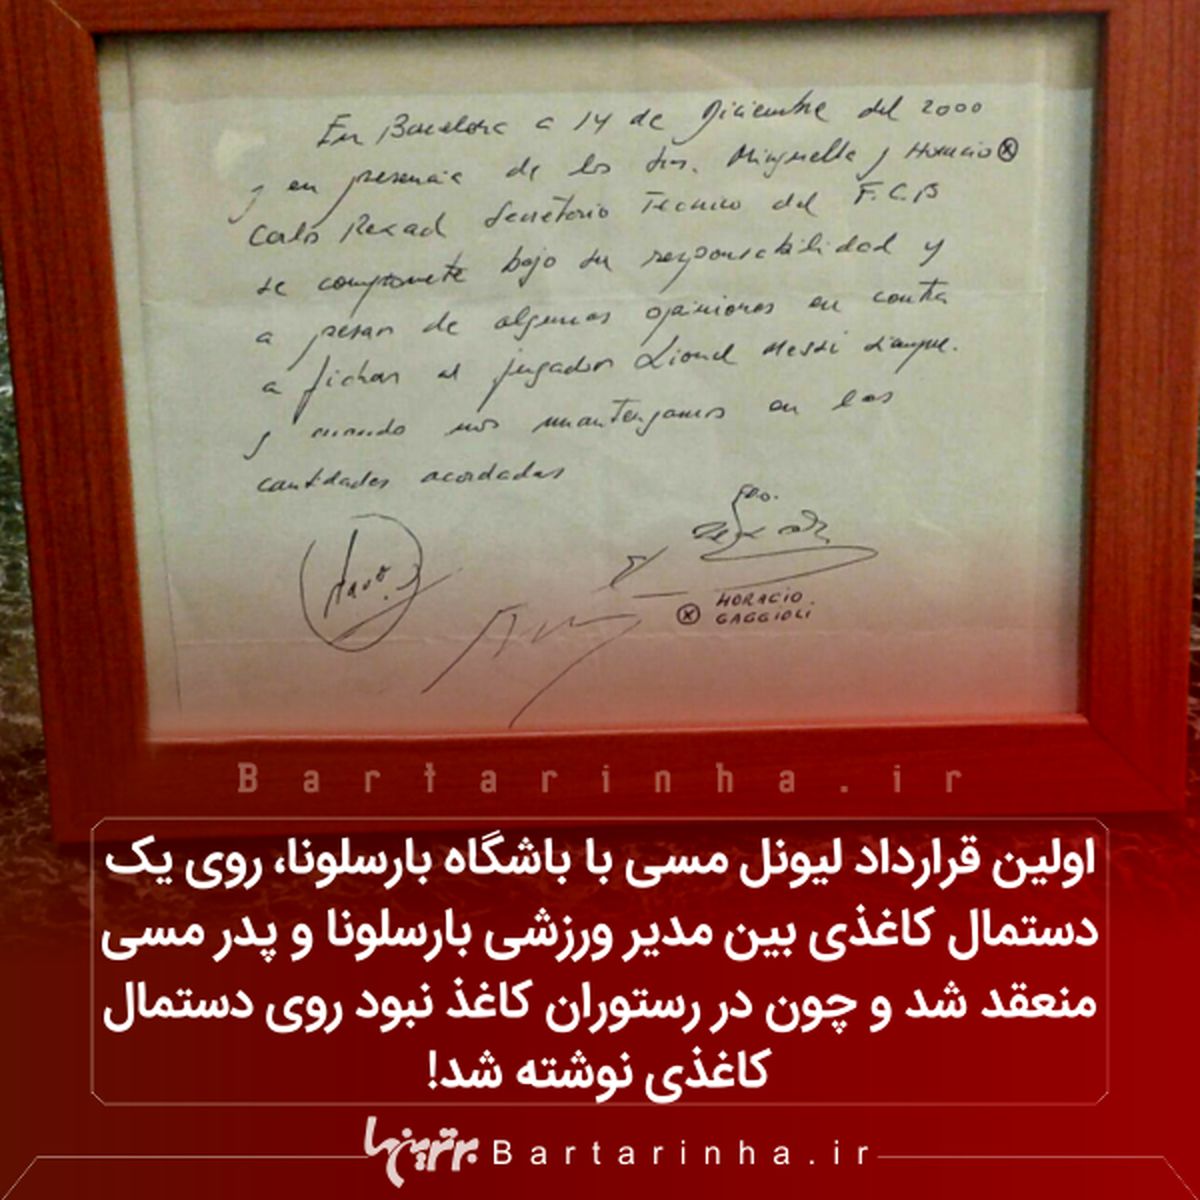 En Barcelona a 14 de Diciembre del 2000
y en presencia de los Srs. Minguella y Horacio ⓧ
Carlos Rexach Secretario Tecnico del F.C.B
se compromete bajo su responsabilidad y
a pesar de algunas opiniones en contra
a fichar al jugador Lionel Messi siempre
y cuando nos mantengamos en las
cantidades acordadas
ⓧ HORACIO
GAGGIOLI
Bartarinha.ir
اولین قرارداد لیونل مسی با باشگاه بارسلونا، روی یک
دستمال کاغذی بین مدیر ورزشی بارسلونا و پدر مسی
منعقد شد و چون در رستوران کاغذ نبود روی دستمال
کاغذی نوشته شد!
برترینها Bartarinha.ir